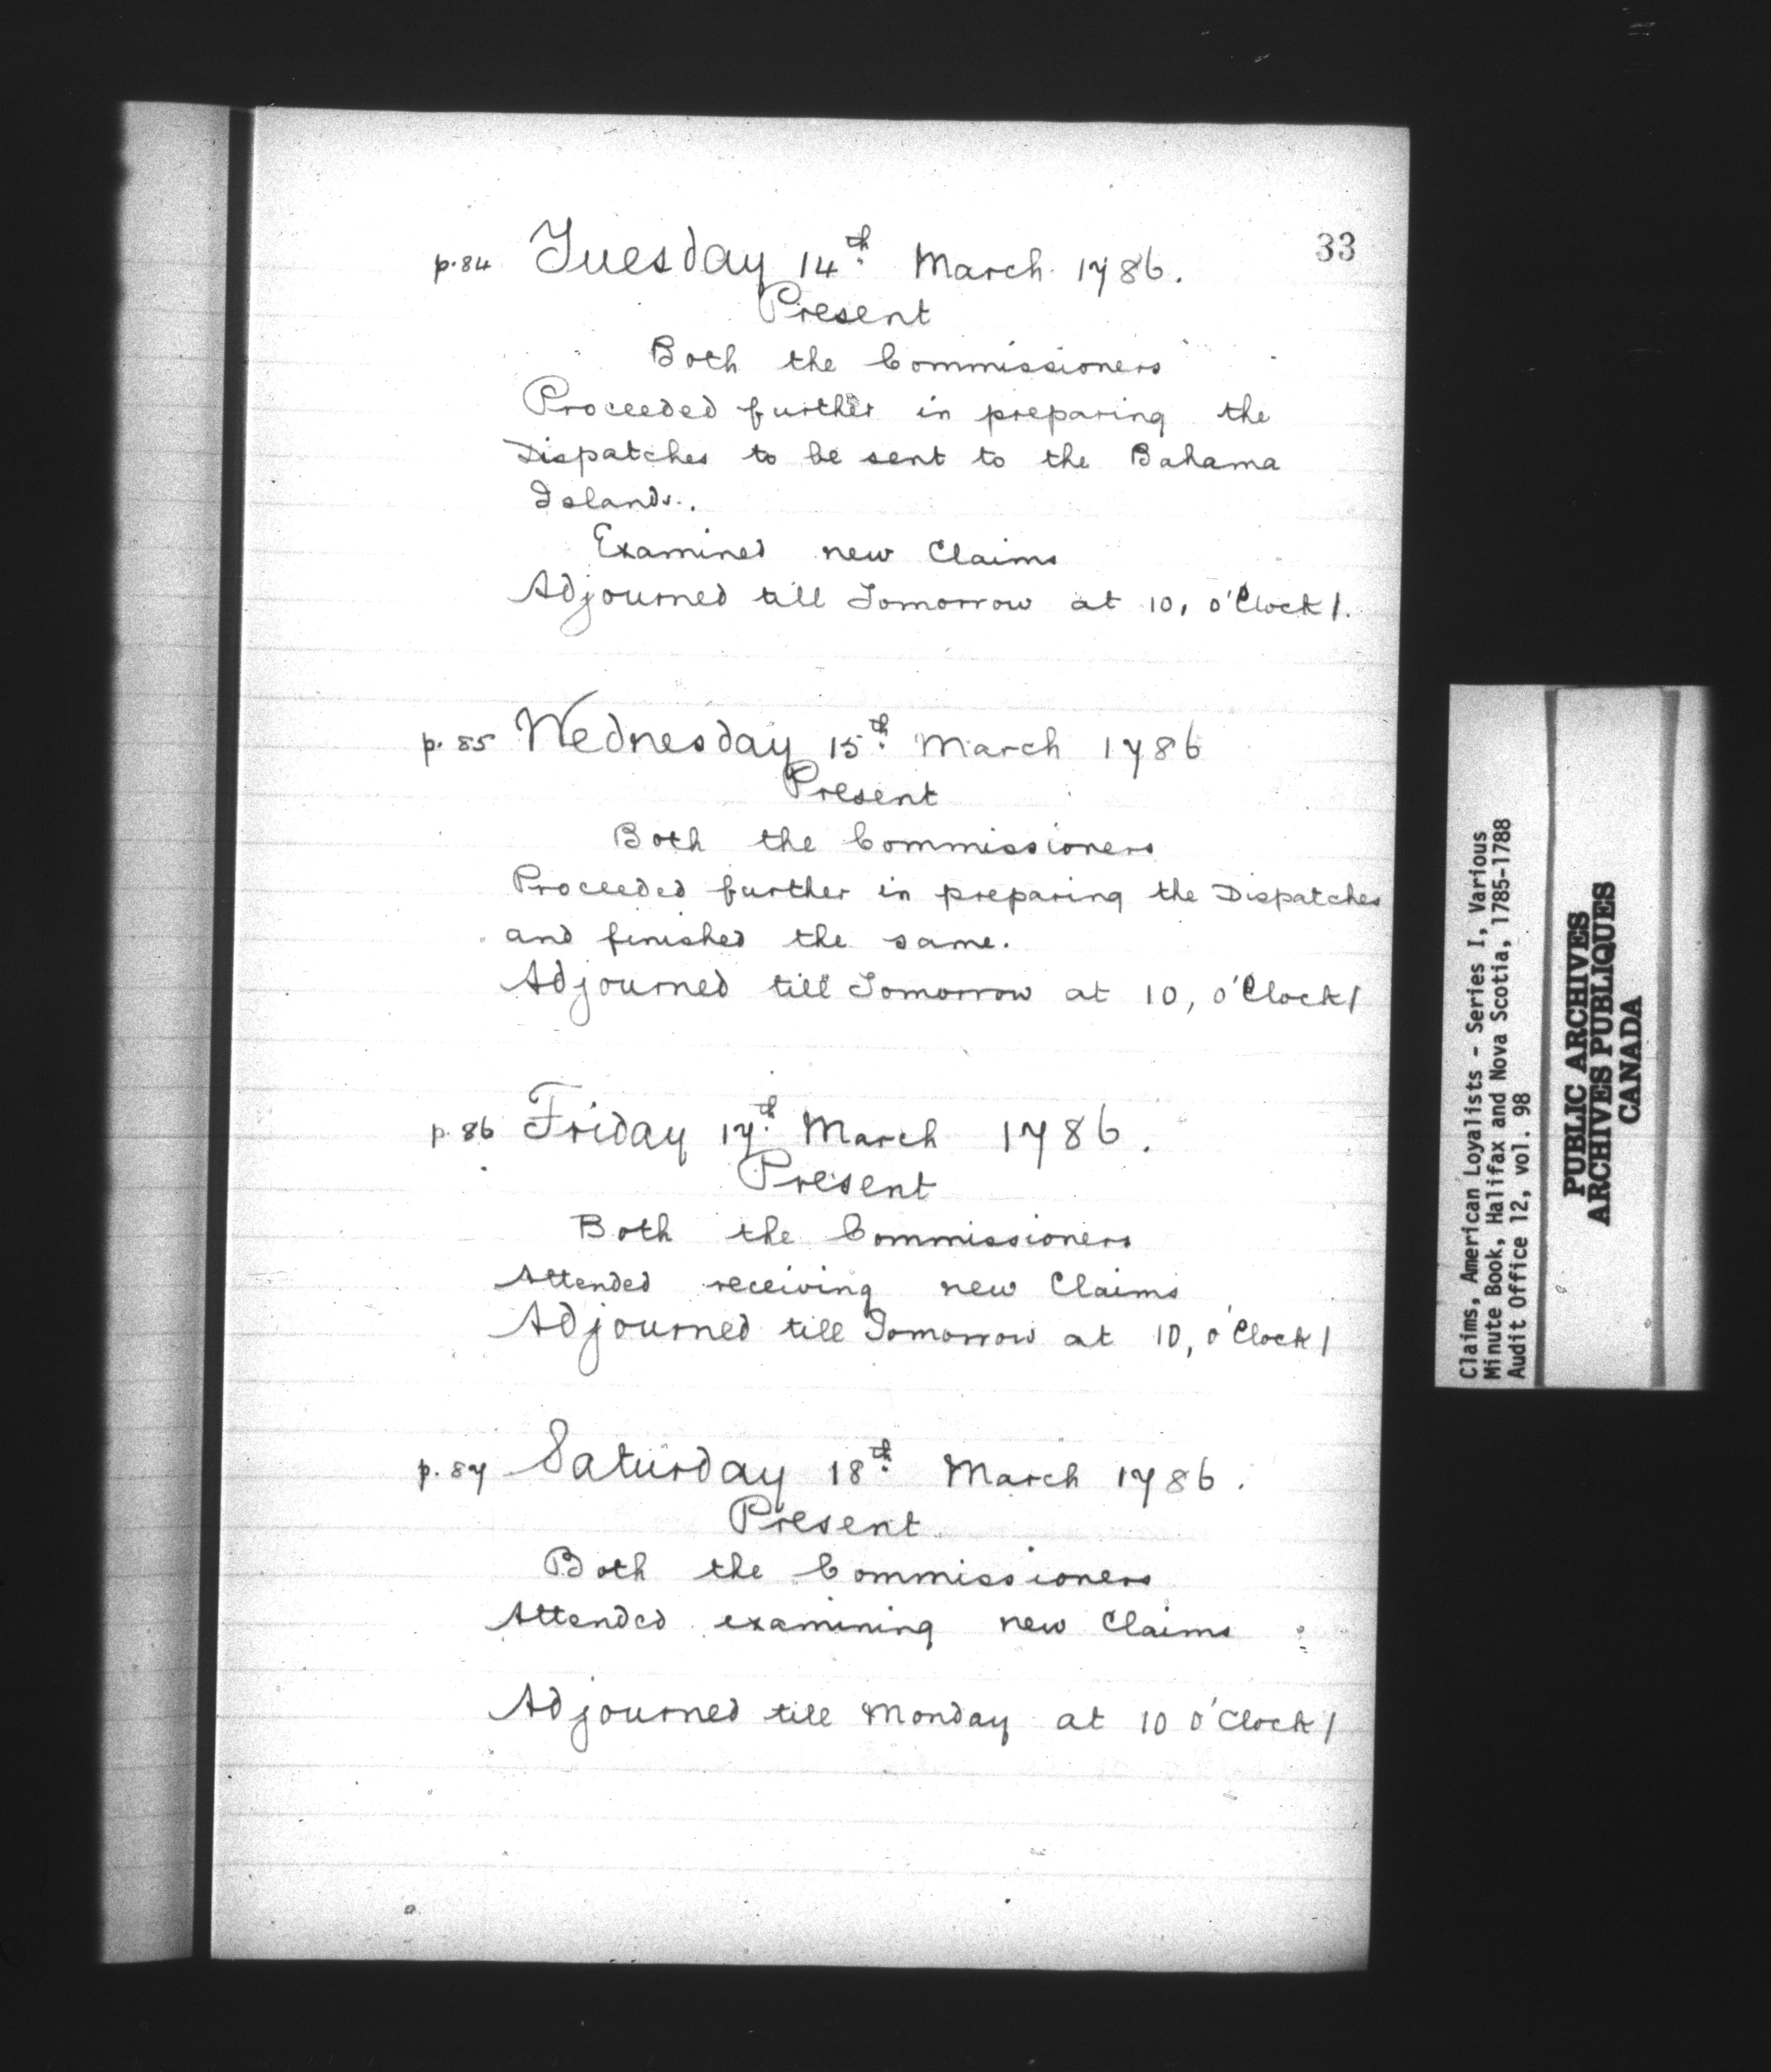 33
p. 84 Tuesday 14th March 1786.
Present
Both the Commissioners
Proceeded further in preparing the
Dispatches to be sent to the Bahama
Islands.
Examined new Claims
Adjourned till Tomorrow at 10, o'Clock/.
p. 85 Wednesday 15th March 1786
Present
Both the Commissioners
Proceeded further in preparing the Dispatches
and finished the same.
Adjourned till Tomorrow at 10, o'Clock/
p. 86 Friday 17th March 1786.
Present
Both the Commissioners
Attended receiving new Claims
Adjourned till Tomorrow at 10, o'Clock/
p. 87 Saturday 18th March 1786.
Present
Both the Commissioners
Attended examining new Claims
Adjourned till Monday at 10 o'Clock/
Claims, American Loyalists - Series I, Various
Minute Book, Halifax and Nova Scotia, 1785-1788
Audit Office 12, vol. 98
PUBLIC ARCHIVES
ARCHIVES PUBLIQUES
CANADA